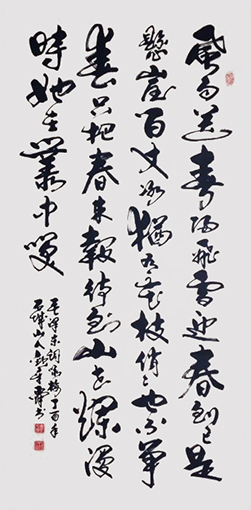 風雨送春歸飛雪迎春到已是
懸崖百丈冰猶有花枝俏俏也不争
春只把春来報待到山花爛漫
時她在叢中笑
毛澤東詞咏梅丁酉年
山人書